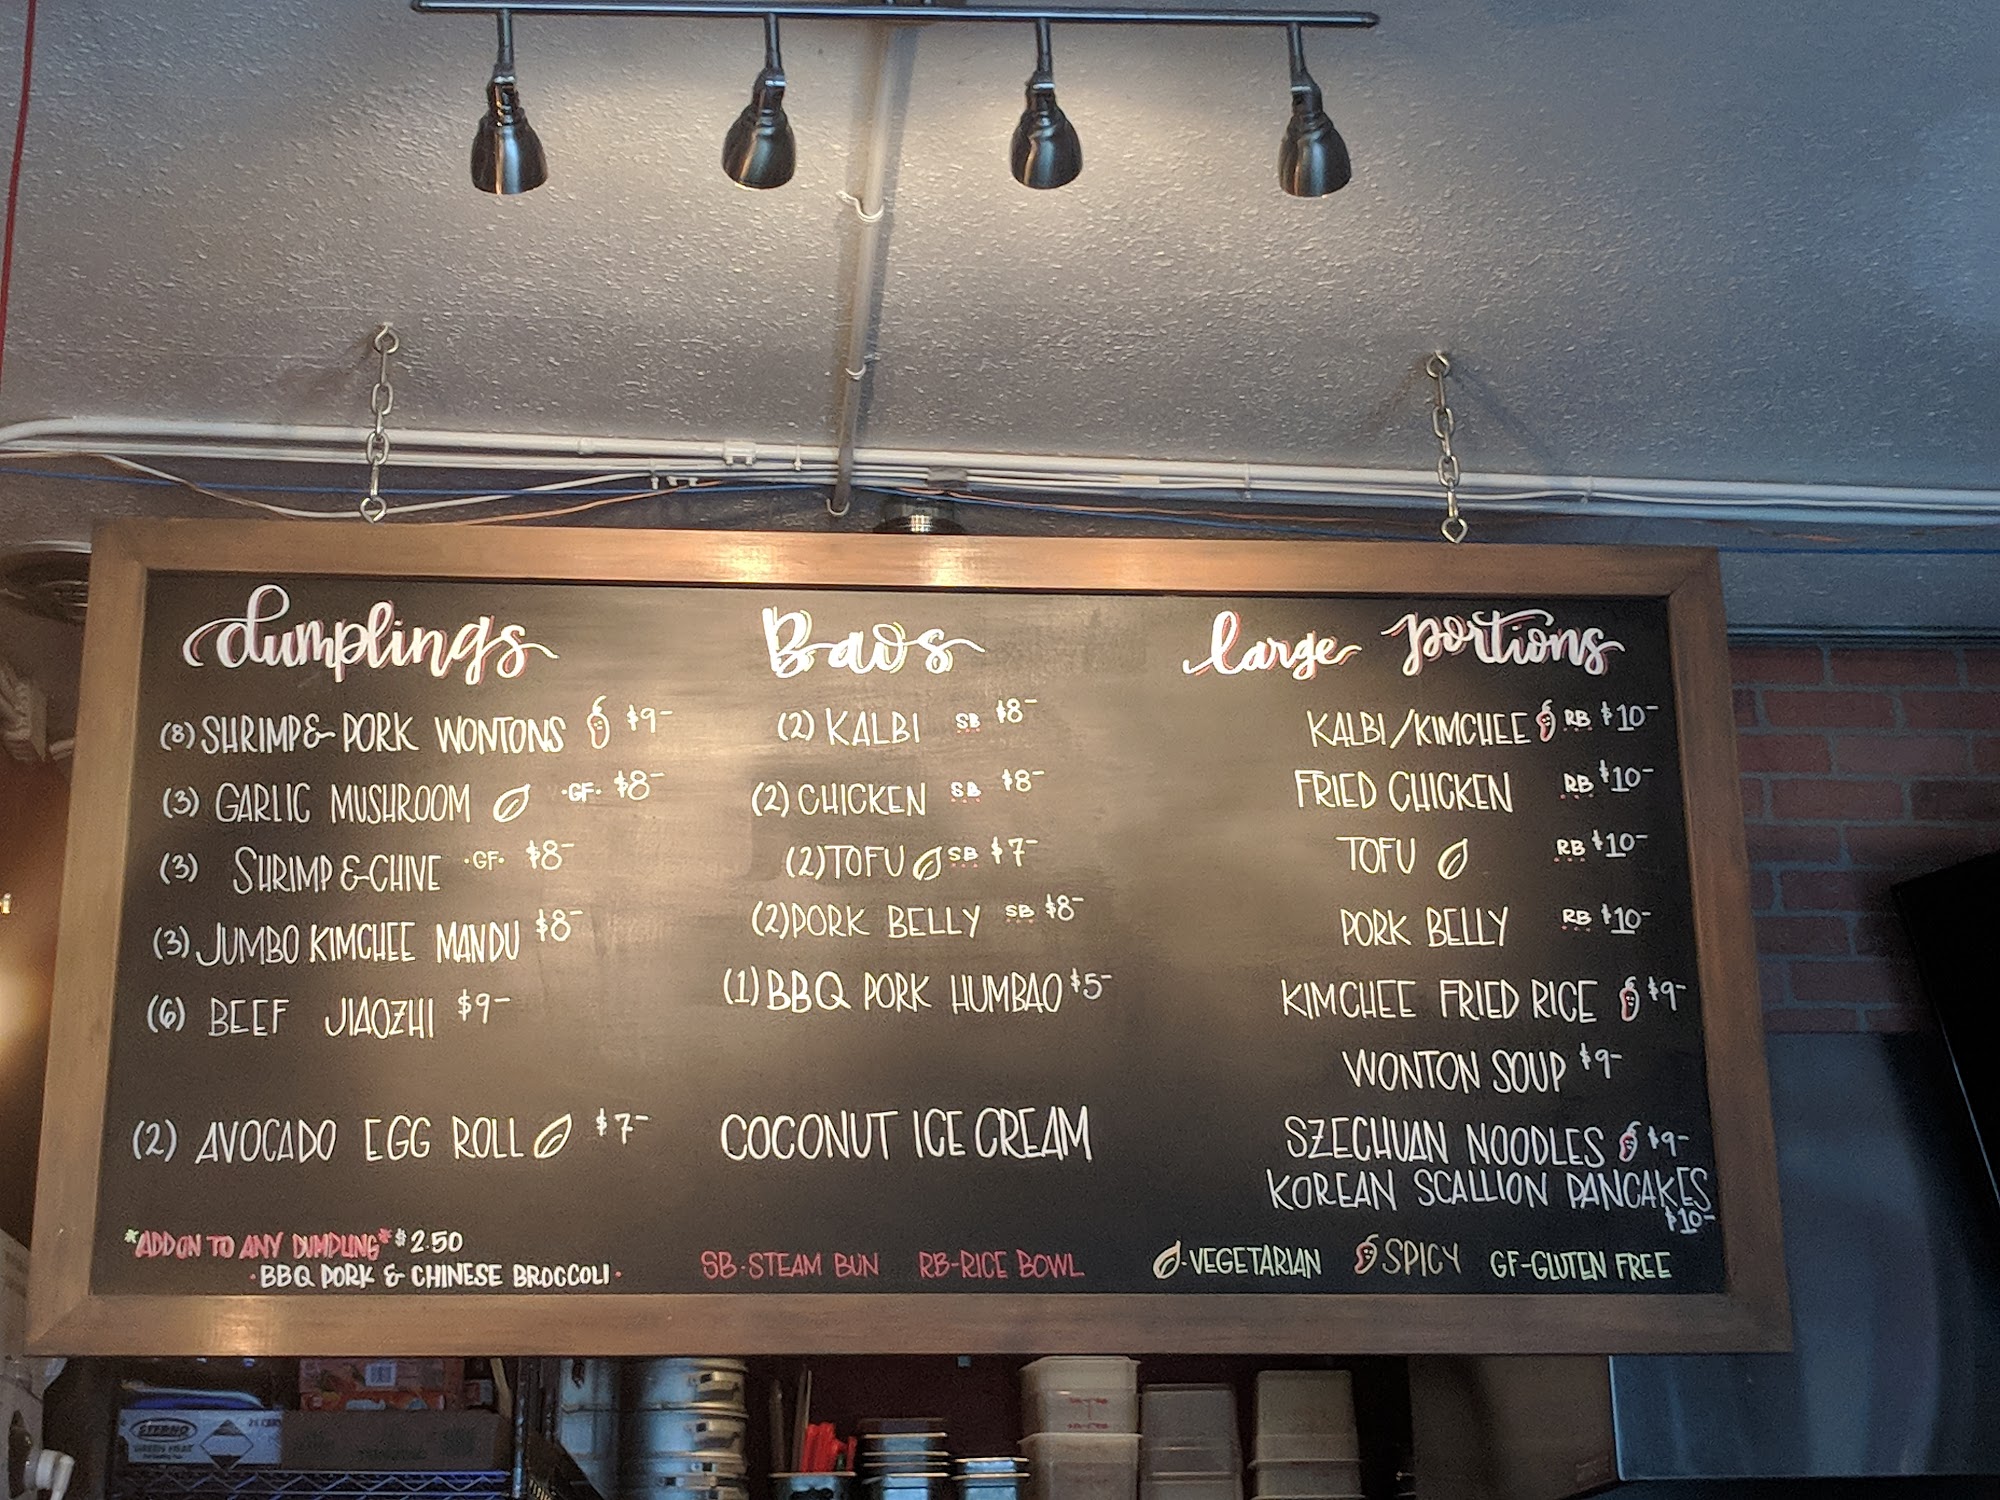 dumplings
(8) SHRIMP & PORK WONTONS $9-
(3) GARLIC MUSHROOM ·GF· $8-
(3) SHRIMP & CHIVE ·GF· $8-
(3) JUMBO KIMCHEE MANDU $8-
(6) BEEF JIAOZHI $9-
(2) AVOCADO EGG ROLL $7-
*ADD ON TO ANY DUMPLING* $2.50
·BBQ PORK & CHINESE BROCCOLI·
Baos
(2) KALBI SB $8-
(2) CHICKEN SB $8-
(2) TOFU SB $7-
(2) PORK BELLY SB $8-
(1) BBQ PORK HUMBAO $5-
COCONUT ICE CREAM
SB-STEAM BUN RB-RICE BOWL
large portions
KALBI/KIMCHEE RB $10-
FRIED CHICKEN RB $10-
TOFU RB $10-
PORK BELLY RB $10-
KIMCHEE FRIED RICE $9-
WONTON SOUP $9-
SZECHUAN NOODLES $9-
KOREAN SCALLION PANCAKES
$10-
-VEGETARIAN SPICY GF-GLUTEN FREE
STERNO
GREEN HEAT